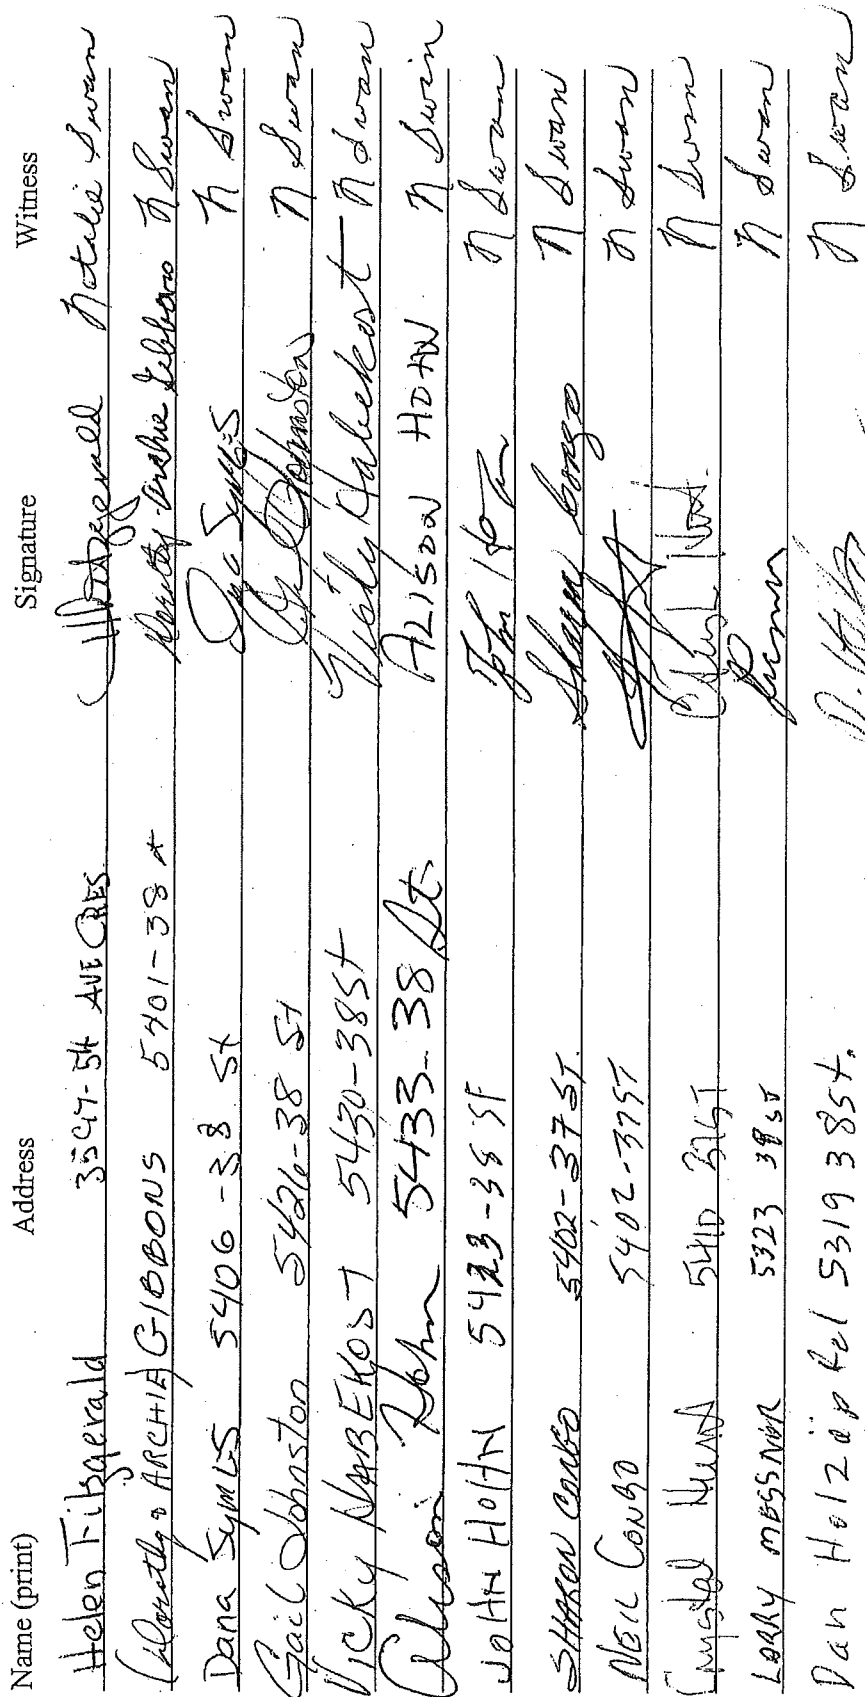 Name (print) Address Signature Witness
Helen Fitzgerald 3547-54 AVE CRES. HFitzgerald Natalie Swan
Dorothy & ARCHIE GIBBONS 5401-38 st Dorothy Archie Gibbons N Swan
Dana Symes 5406-38 St N Swan
Gail Johnston 5426-38 St G Johnston N Swan
Vicky HABEKOST 5430-38St Vicky Habekost N Swan
Alison Hohn 5433-38 St. ALISON HOHN N Swan
JOHN HOHN 5433-38 ST John N Swan
SHARON CONGO 5402-37 ST. Sharon Congo N Swan
NEIL CONGO 5402-37ST N Swan
Crystal Hunt 5410 37ST N Swan
LARRY MESSNER 5323 38 ST N Swan
Dan Holzäpfel 5319 38St. N Swan